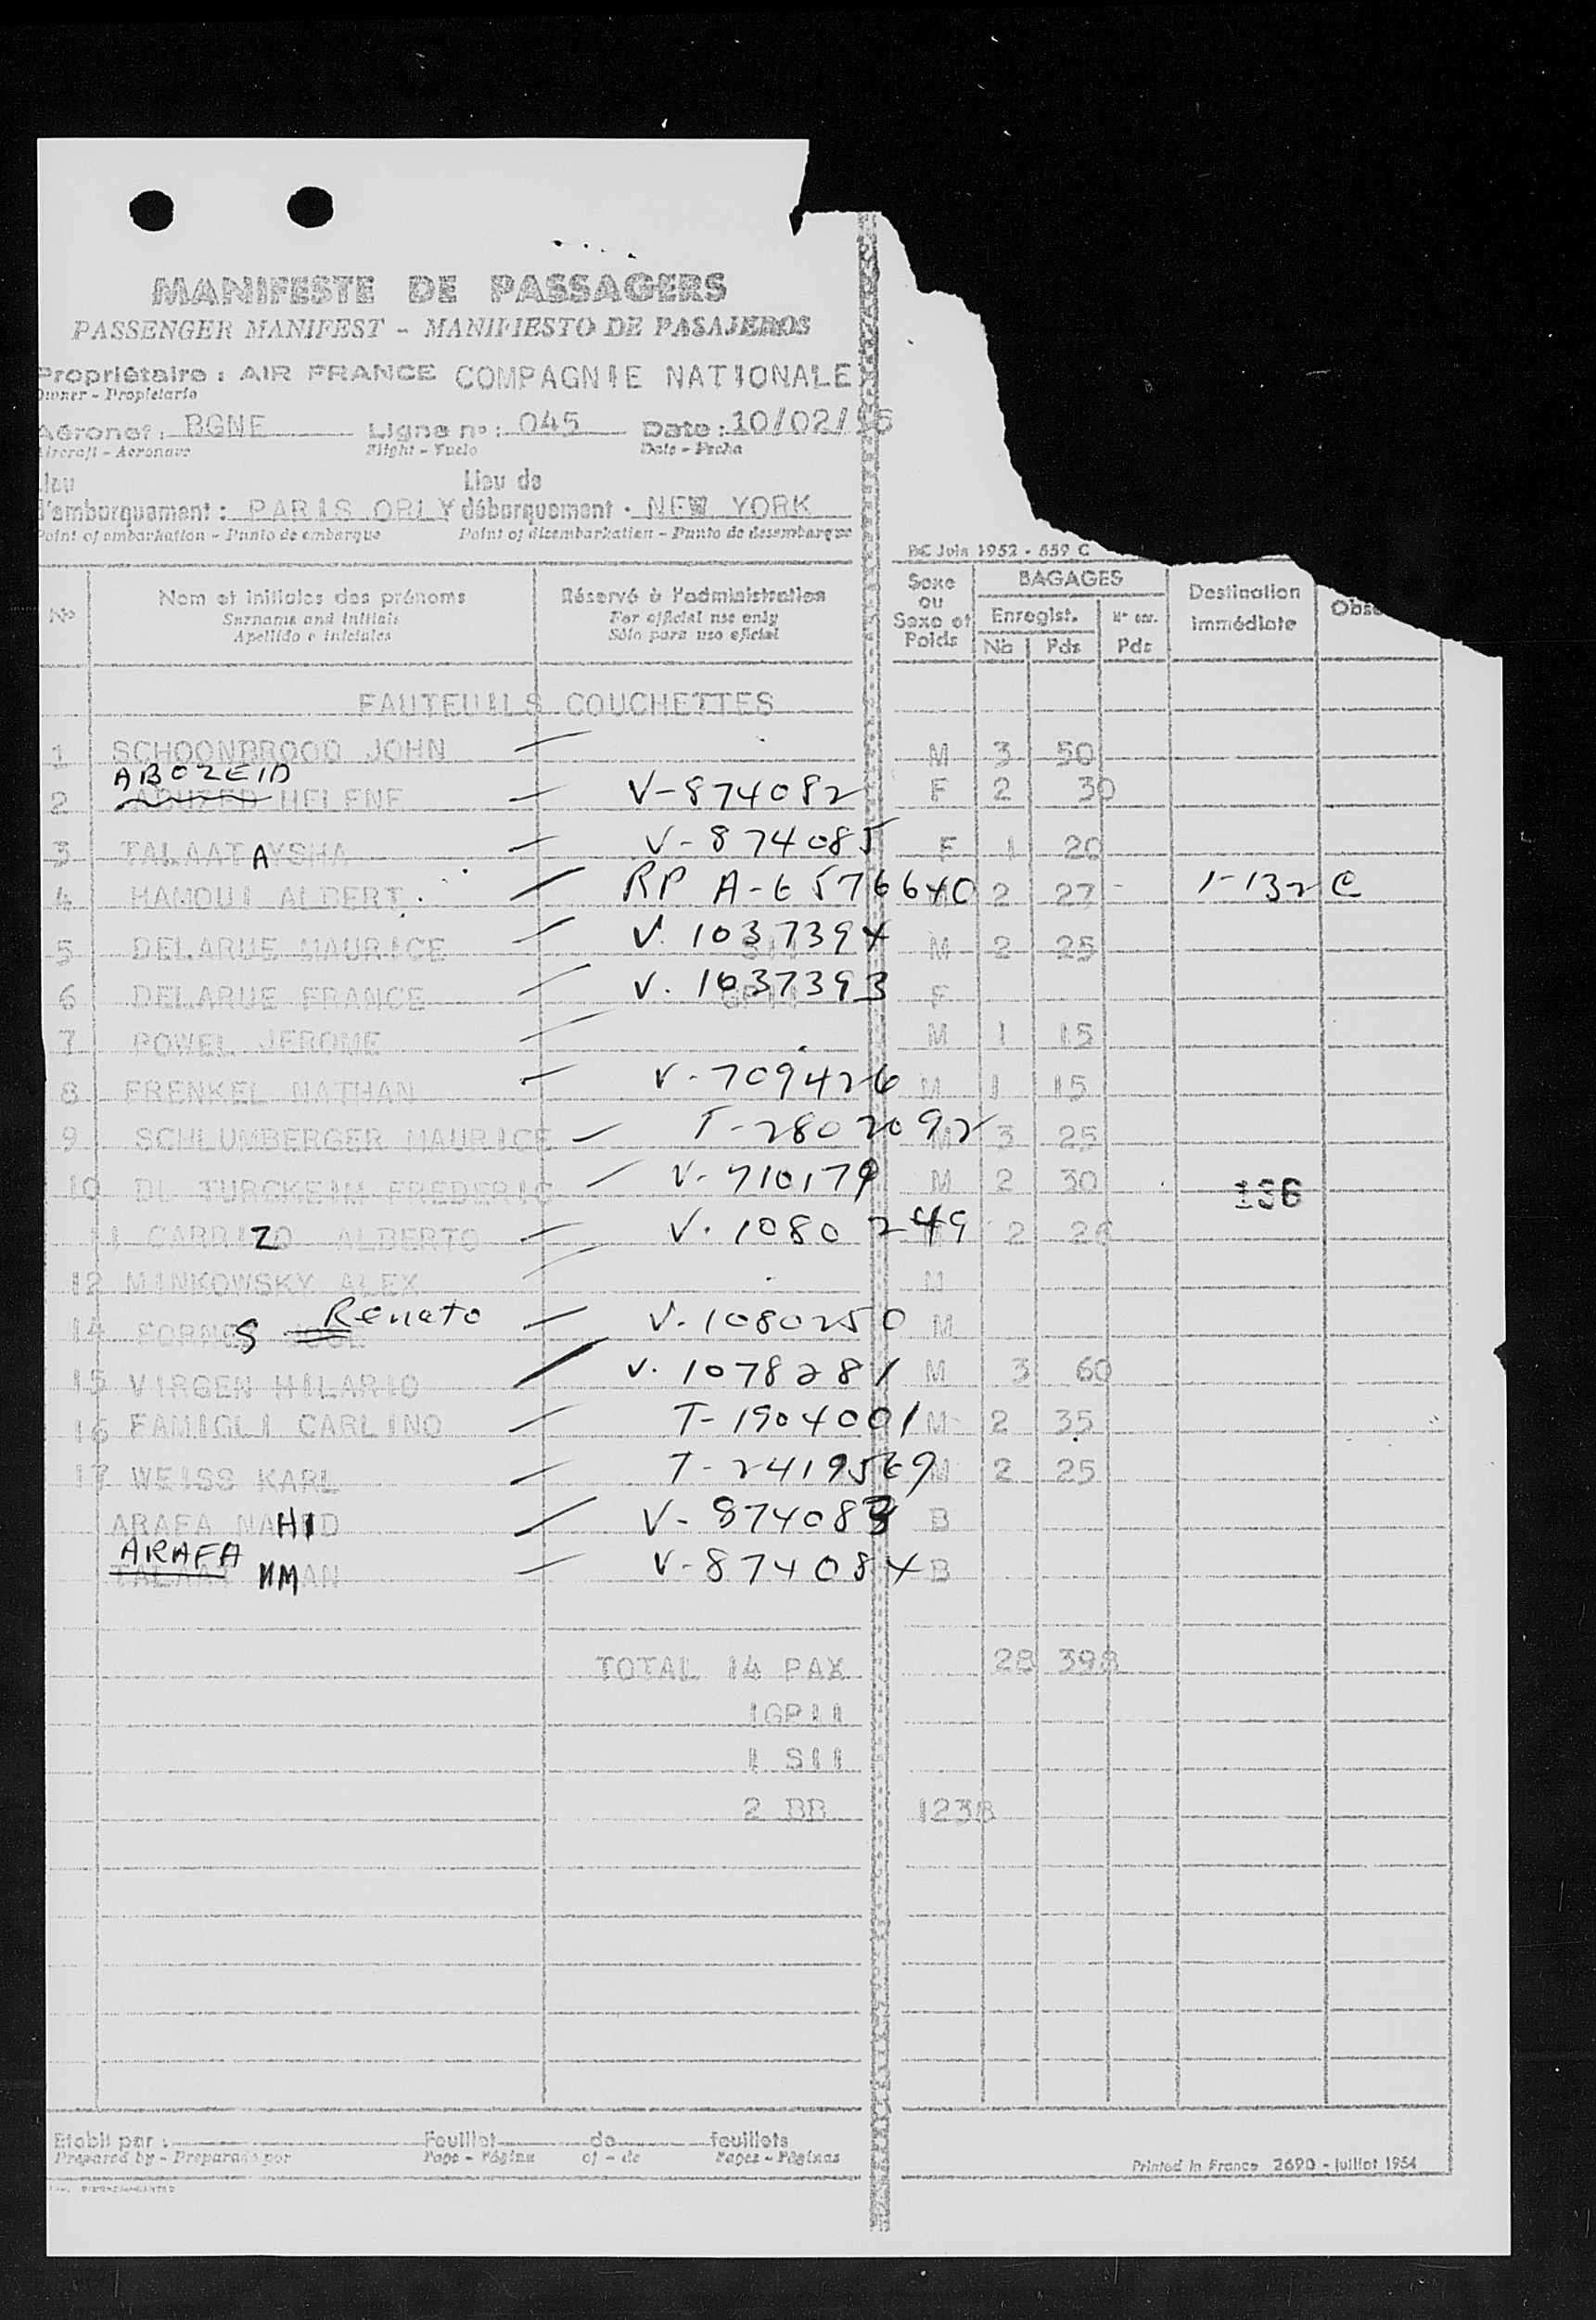 MANIFESTE DE PASSAGERS
PASSENGER MANIFEST - MANIFIESTO DE PASAJEROS
Propriétaire : AIR FRANCE COMPAGNIE NATIONALE
Owner - Propietario
Aéronef : BGNE Ligne n° : 045 Date : 10/02/56
Aircraft - Aeronave Flight - Vuelo Date - Fecha
Lieu Lieu de
d'embarquement : PARIS ORLY débarquement : NEW YORK
Point of embarkation - Punto de embarque Point of disembarkation - Punto de desembarque
BC Juin 1952 - 559 C
N° Nom et initiales des prénoms Réservé à l'administration Sexe ou Sexe et Poids BAGAGES Destination immédiate
Surname and initials For official use only Enregist. N° enr.
Apellido e iniciales Sólo para uso oficial Nb Pds Pds
FAUTEUILS COUCHETTES
1 SCHOONBROOD JOHN — M 3 50
ABOZEID
2 HELENE — V-874082 F 2 30
3 TALAAT AYSHA — V-874085 F 1 20
4 HAMOUI ALBERT — RP A-6576640 2 27 - 1-132 C
5 DELARUE MAURICE — V. 1037394 M 2 25
6 DELARUE FRANCE — V. 1037393 F
7 POWEL JEROME — M 1 15
8 FRENKEL NATHAN — V-709426 M 1 15
9 SCHLUMBERGER MAURICE — T-2802092 M 3 25
10 DE TURCKEIM FREDERIC — V-710179 M 2 30 156
11 CARRIZO ALBERTO — V. 1080249 2 26
12 MINKOWSKY ALEX — M
14 FORNES Renato — V. 1080250 M
15 VIRGEN HILARIO — V. 1078281 M 3 60
16 FAMIGLI CARLINO — T-1904001 M 2 35
17 WEISS KARL — T-2419569 M 2 25
ARAFA NAHID — V-874083 B
ARAFA
TALAAT IMAN — V-874084 B
TOTAL 14 PAX 28 398
1GP11
1 S11
2 BB 1238
Etabli par : Feuillet de feuillets
Prepared by - Preparado por Page - Página of - de Pages - Páginas
Printed in France 2690 - juillet 1954